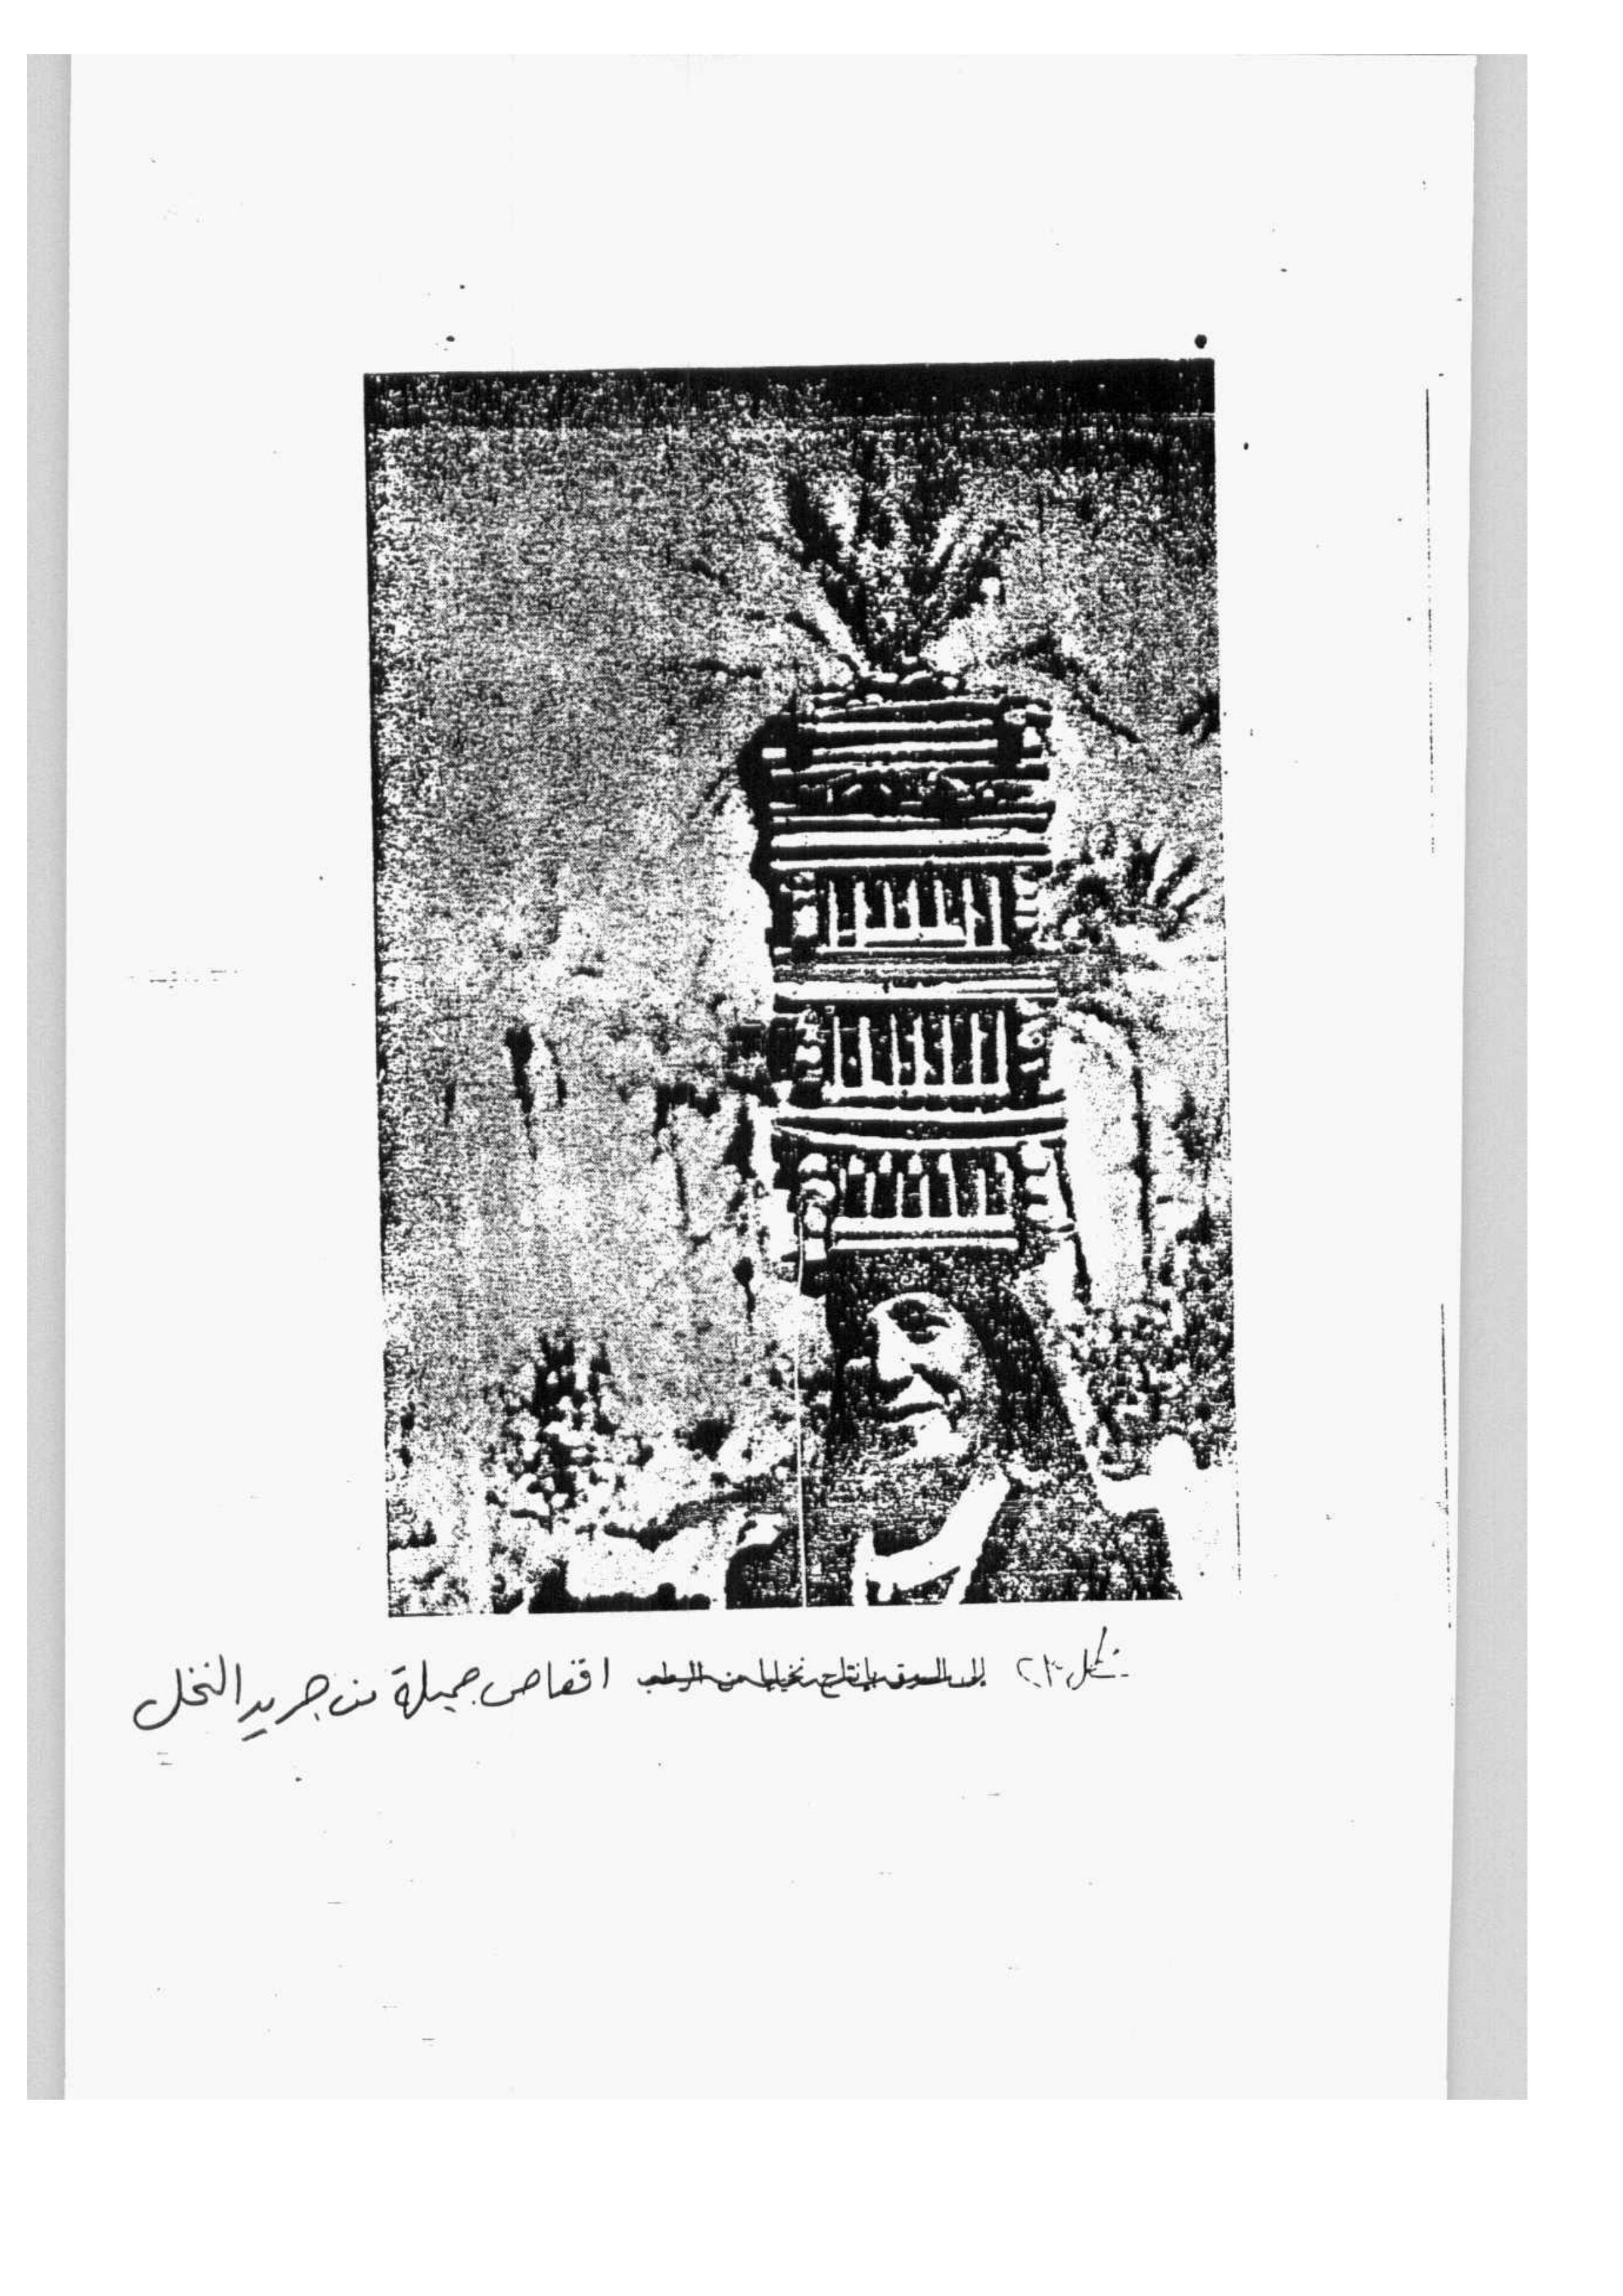 شكل ٢٠ إلى السوق بإنتاج نخيلها من الرطب اقفاص جميلة من جريد النخل